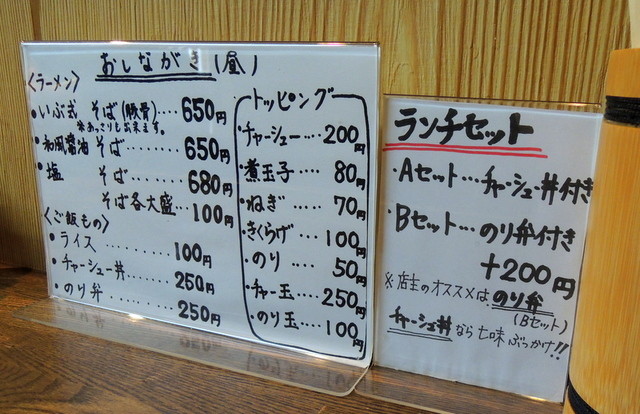 おしながき(昼)
〈ラーメン〉
・いぶ式 そば(豚骨)‥‥650円
※あっさりも出来ます。
・和風醤油そば‥‥650円
・塩 そば‥‥680円
そば各大盛‥100円
〈ご飯もの〉
・ライス‥‥‥‥100円
・チャーシュー丼‥‥250円
・のり弁‥‥‥‥250円
トッピング
・チャーシュー‥‥200円
・煮玉子‥‥80円
・ねぎ‥‥70円
・きくらげ‥‥100円
・のり‥‥50円
・チャー玉‥‥250円
・のり玉‥‥100円
ランチセット
・Aセット‥‥チャーシュー丼付き
・Bセット‥‥のり弁付き
+200円
※店主のオススメはのり弁
(Bセット)
チャーシュー丼なら七味ぶっかけ!!